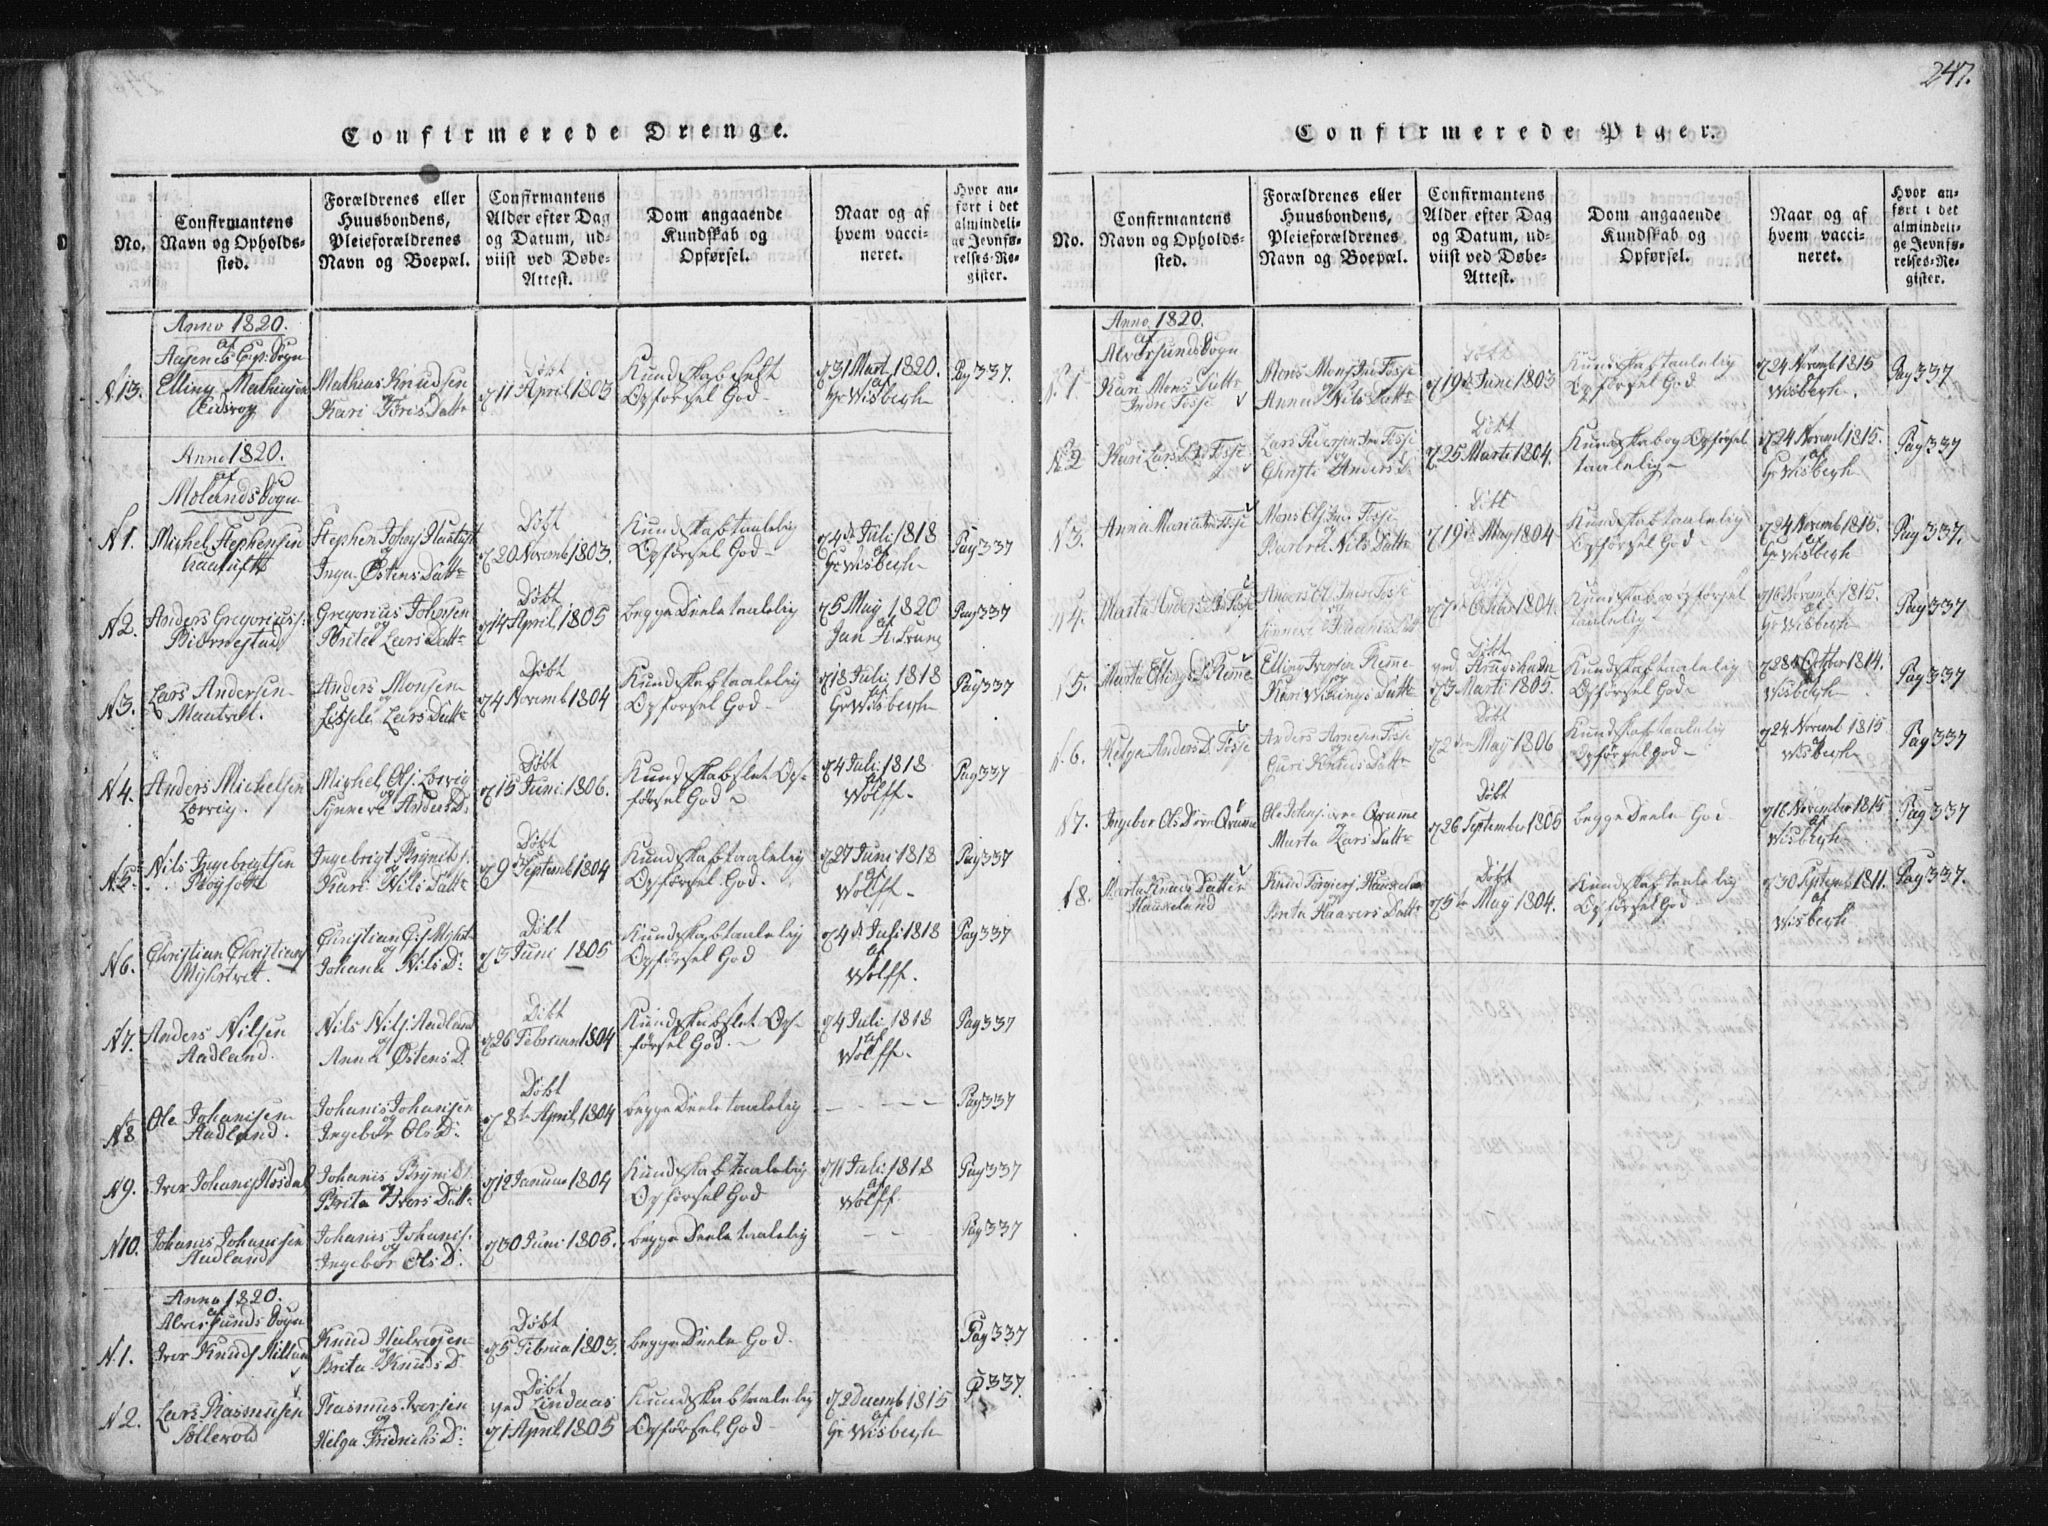 247.
Confirmerede Drenge.
No.
Confirmantens Navn og Opholds-sted.
Forældrenes eller Huusbondens, Pleieforældrenes Navn og Boepæl.
Confirmantens Alder efter Dag og Datum, ud-viist ved Døbe-Attest.
Dom angaaende Kundskab og Opførsel.
Naar og af hvem vacci-neret.
Hvor an-ført i det almindeli-ge Jevnfø-relses-Re-gister.
Anno 1820.
af
Sogn
N 13. Elling Mathiasen
Mathias Knudsen
Kari
Døbt
11 April 1803
Kundskab slett
Opførsel God
31 Mart. 1820.
af
Hr Wisbegh
Pag 337.
Anno 1820.
af
Molands Sogn
N 1. Michel Stephensen
Stephen Johns
Inga Østens Datt
Døbt
20 Novemb 1803.
Kundskab taalelig
Opførsel God
4de Juli 1818
af
Hr Wisbegh
Pag 337
N 2. Anders Gregoriuss:
Biørnestad
Gregorius Johnsen
og
Brite Lars Datt
Døbt
14 April 1805
begge Deele taalelig
5 May 1820
af
Jan
Pag 337
N 3. Lars Andersen
Anders Monsen
og
Lars Datt
Døbt
4 Novemb 1804
Kundskab taalelig
Opførsel God
18 Juli 1818
af
Hr Wisbegh
Pag 337
N 4. Anders Michelsen
Lervig.
Michel Ols: Lervig
og
Synneve Anders D:
Døbt
15 Juni 1806.
Kundskab slet Op-
førsel God
4 Juli 1818
af
Wolff.
Pag 337
N 5. Nils Ingebrigtsen
Ingebrigt
og
Kari Nils Datt
Døbt
9 Septemb 1804
Kundskab taalelig
Opførsel God.
27 Juni 1818
af
Wolff.
Pag 337
N 6. Christian Christians
Christian
og
Johana Nils D:
Døbt
3 Juni 1805
Kundskab taalelig
Opførsel God
4de Juli 1818
af
Wolff.
Pag 337
N 7. Anders Nilsen
Aadland.
Nils Nils: Aadland
og
Anna Østens D.
Døbt
26 Februar 1804
Kundskab slet Op-
førsel God.
4 Juli 1818
af
Wolff.
Pag 337
N 8. Ole Johanisen
Aadland.
Johanis Johanisen
og
Ingebor Ols D:
Døbt
8de April 1804
begge Deele taalelig
Pag 337
N 9. Iver Johanis
Johanis
og
Brita Ivers Datt
12 Januar 1804
Kundskab taalelig
Opførsel God
11 Juli 1818
af
Wolff.
Pag 337
N 10. Johanis Johanisen
Aadland
Johanis Johanis:
og
Ingebor Ols D:
30 Juni 1805.
begge Deele taalelig
Pag 337
Anno 1820.
af
Alversunds Sogn
N. 1. Iver Knuds
Knud
og
Brita Knuds D
Døbt
5 Februa 1803.
begge Deele God.
Pag 337
N 2. Lars Rasmusen
Rasmus Iversen
og
Helga Fridrichs D:
Døbt
ved Lindaas
1 April 1805
Kundskab taalelig
Opførsel God
2 Decemb 1815
af
Hr Wisbegh
P 337.
Confirmerede Piger.
No.
Confirmantens Navn og Opholds-sted.
Forældrenes eller Huusbondens, Pleieforældrenes Navn og Boepæl.
Confirmantens Alder efter Dag og Datum, ud-viist ved Døbe-Attest.
Dom angaaende Kundskab og Opførsel.
Naar og af hvem vacci-neret.
Hvor an-ført i det almindeli-ge Jevnfø-relses-Re-gister.
Anno 1820.
af
Alversunds Sogn
N. 1. Kari Mons Datt
Indre Fosse
Mons Mons Ind Fosse
og
Anna Nils Datt
Døbt
19de Juni 1803
Kundskab taalelig
Opførsel God
24 Novemb 1815
Wisbegh.
Pag 337
N 2 Kari Lars D Ind Fosse
Lars Pedersen Ind Fosse
og
Christi Anders D
Døbt
25 Marti 1804.
Kundskab og Opførsel
taalelig
24 Novemb 1815.
af
Hr Wisbegh
Pag 337
N 3. Anna Mons Ind Fosse
Mons Ols Ind Fosse
og
Barbra Nils Datt
Døbt
19de May 1804
Kundskab taalelig
Opførsel God
24 Novemb 1815.
af
Hr Wisbegh
Pag 337.
N 4. Marta Anders D Ind Fosse
Anders Ol Indre Fosse
og
Døbt
7de Octbr 1804.
Kundskab og Opførsel
taalelig
16 Novemb 1815.
af
Hr Wisbegh
Pag 337
N 5. Marta Ellings D Remme
Elling Iversen Remme
og
Kari Vikings Datt
Døbt
ved
3 Marti 1805.
Kundskab taalelig
Opførsel God
28de October 1814.
Wisbegh
Pag 337
N. 6. Helga Anders D. Fosse
Anders Arnesen Fosse
og
Guri Knuds Datt
Døbt
2den May 1806
Kundskab taalelig
Opførsel God
24 Novemb 1815
af
Wisbegh
Pag 337
N 7. Ingebor Ols D øvre Qvamme
Ole Johns: øvre Qvamme
Marta Lars Datt
Døbt
26 September 1805
begge Deele God
16 November 1815
af
Wisbegh
Pag 337
N 8. Marta Knuds Datter
Haukeland
Knud
Brita Haavers Datt
Døbt
5te May 1804.
Kundskab taalelig
Opførsel God
30 Septemb 1811.
af
Wisbegh
Pag 337.